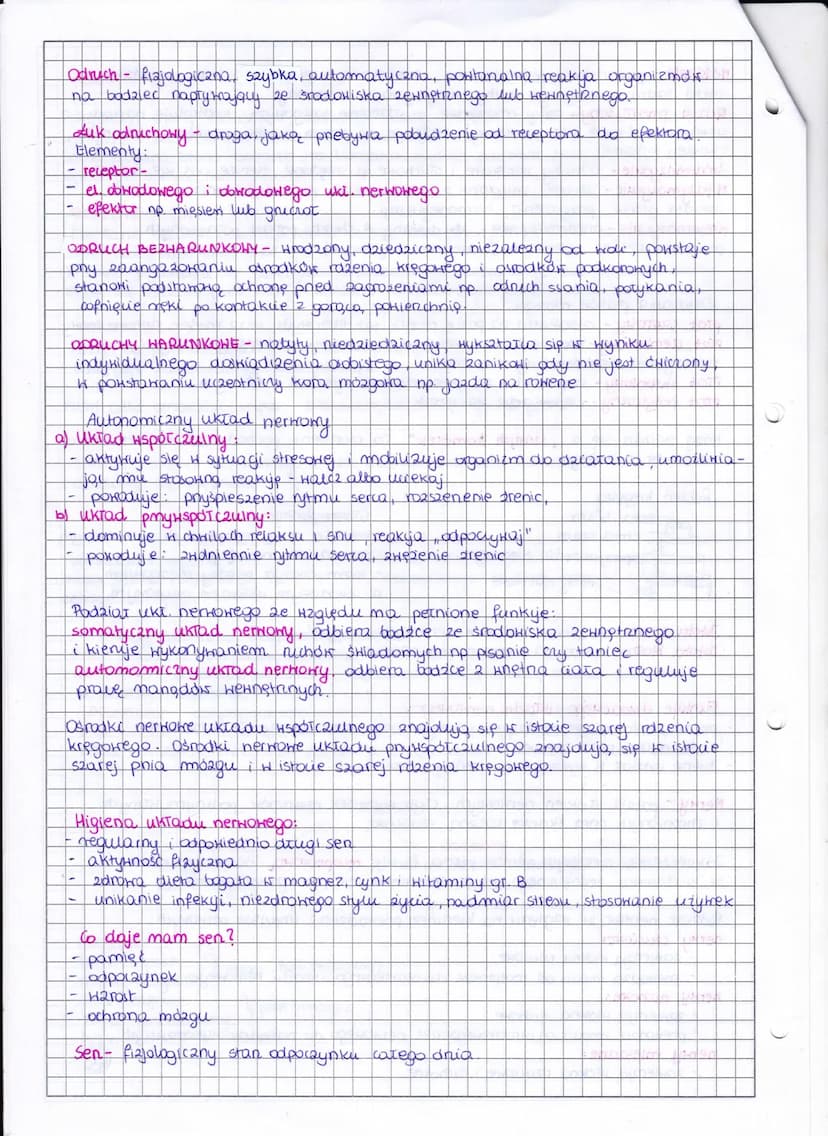 Odruch - fizjologiczna, szybka, automatyczna, powtarzalna reakcja organizmów
na bodziec napływający ze środowiska zewnętrznego lub wewnętrznego.
Łuk odruchowy - droga, jaką przebywa pobudzenie od receptora do efektora.
Elementy:
- receptor -
- el. dowodowego i obwodowego ukł. nerwowego
- efektor np. mięsień lub gruczoł
ODRUCH BEZWARUNKOWY - wrodzony, dziedziczny, niezależny od woli, powstaje
przy zaangażowaniu ośrodków rdzenia kręgowego i ośrodków podkorowych,
stanowi podstawową ochronę przed zagrożeniami np. odruch ssania, połykania,
cofnięcie ręki po kontakcie z gorącą, powierzchnią.
ODRUCHY WARUNKOWE - nabyty, niedziedziczny, wykształca się w wyniku
indywidualnego doświadczenia osobistego, unika zanikowi gdy nie jest ćwiczony,
w powstawaniu uczestniczy kora mózgowa np. jazda na rowerze
Autonomiczny układ nerwowy
a) Układ współczulny:
- aktywuje się w sytuacji stresowej i mobilizuje organizm do działania, umożliwia-
jąc mu stosowną reakcję - walcz albo uciekaj
- powoduje: przyśpieszenie rytmu serca, rozszerzenie źrenic,
b) układ przywspółczulny:
- dominuje w chwilach relaksu i snu, reakcja „odpoczywaj"
- powoduje: zwolnienie rytmu serca, zwężenie źrenic
Podział ukł. nerwowego ze względu na pełnione funkcje:
somatyczny układ nerwowy, odbiera bodźce ze środowiska zewnętrznego
i kieruje wykonywaniem ruchów świadomych np pisanie czy taniec
autonomiczny układ nerwowy, odbiera bodźce z wnętrza ciała i reguluje
pracę narządów wewnętrznych.
Ośrodki nerwowe układu współczulnego znajdują się w istocie szarej rdzenia
kręgowego. Ośrodki nerwowe układu przywspółczulnego znajdują, się w istocie
szarej pnia mózgu i w istocie szarej rdzenia kręgowego.
Higiena układu nerwowego:
- regularny i odpowiednio długi sen
- aktywność fizyczna
- zdrowa dieta bogata w magnez, cynk i witaminy gr. B
- unikanie infekcji, niezdrowego stylu życia, nadmiar stresu, stosowanie używek
Co daje nam sen?
- pamięć
- odpoczynek
- wzrost
- ochrona mózgu
Sen - fizjologiczny stan odpoczynku całego dnia.